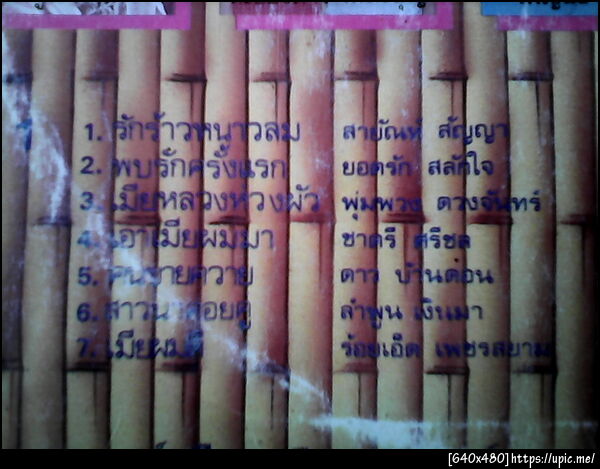 1. รักร้าวหนาวลม สายัณห์ สัญญา
2. พบรักครั้งแรก ยอดรัก สลักใจ
3. เมียหลวงหวงผัว พุ่มพวง ดวงจันทร์
4. เอาเมียผมมา ชาตรี ศรีชล
5. คนขายควาย ดาว บ้านดอน
6. สาวนาคอยคู่ ลำพูน เงินมา
7. เมียผมดี ร้อยเอ็ด เพชรสยาม
[640x480]https://upic.me/